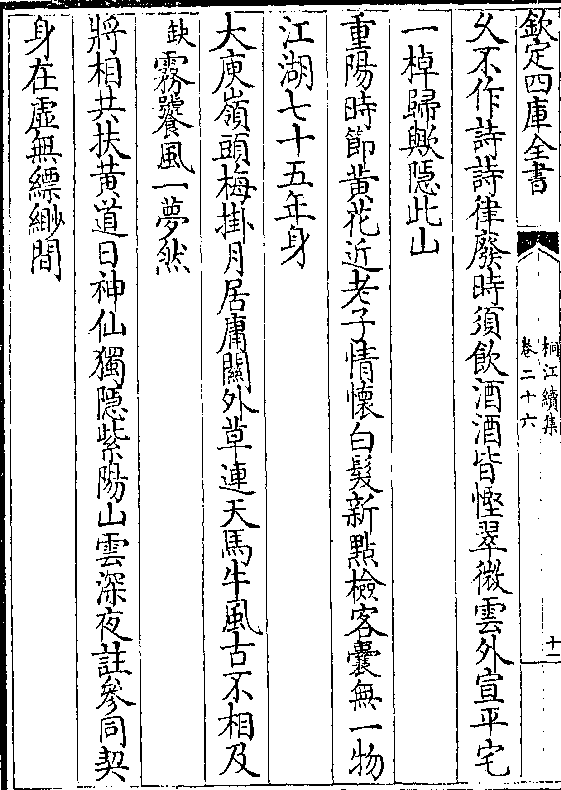 欽定四庫全書
桐江續集
卷二十六
十二
久不作詩詩律廢時須飲酒酒皆慳翠微雲外宣平宅
一棹歸歟隠此山
重陽時節黄花近老子情懷白髮新點檢客囊無一物
江湖七十五年身
大庾嶺頭梅掛月居庸關外草連天馬牛風古不相及
缺霧饕風一夢然
將相共扶黄道日神仙獨隠紫陽山雲深夜註參同契
身在虚無縹緲間